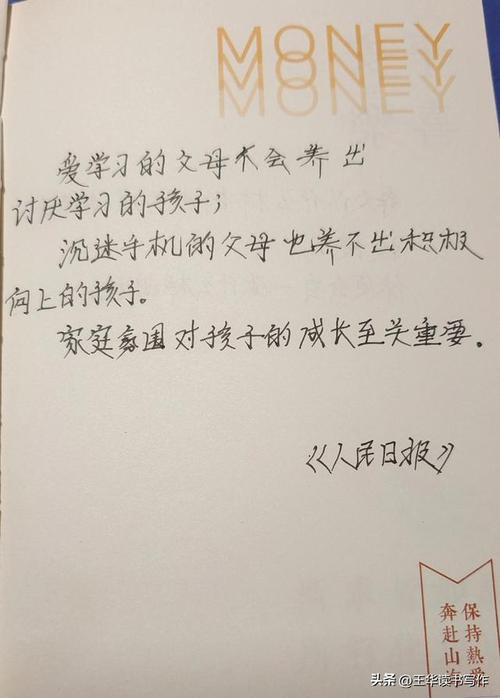 MONEY
MONEY
MONEY
爱学习的父母不会养出
讨厌学习的孩子；
沉迷手机的父母也养不出积极
向上的孩子。
家庭氛围对孩子的成长至关重要。
《人民日报》
保持熱爱
奔赴山海
头条 @王华读书写作